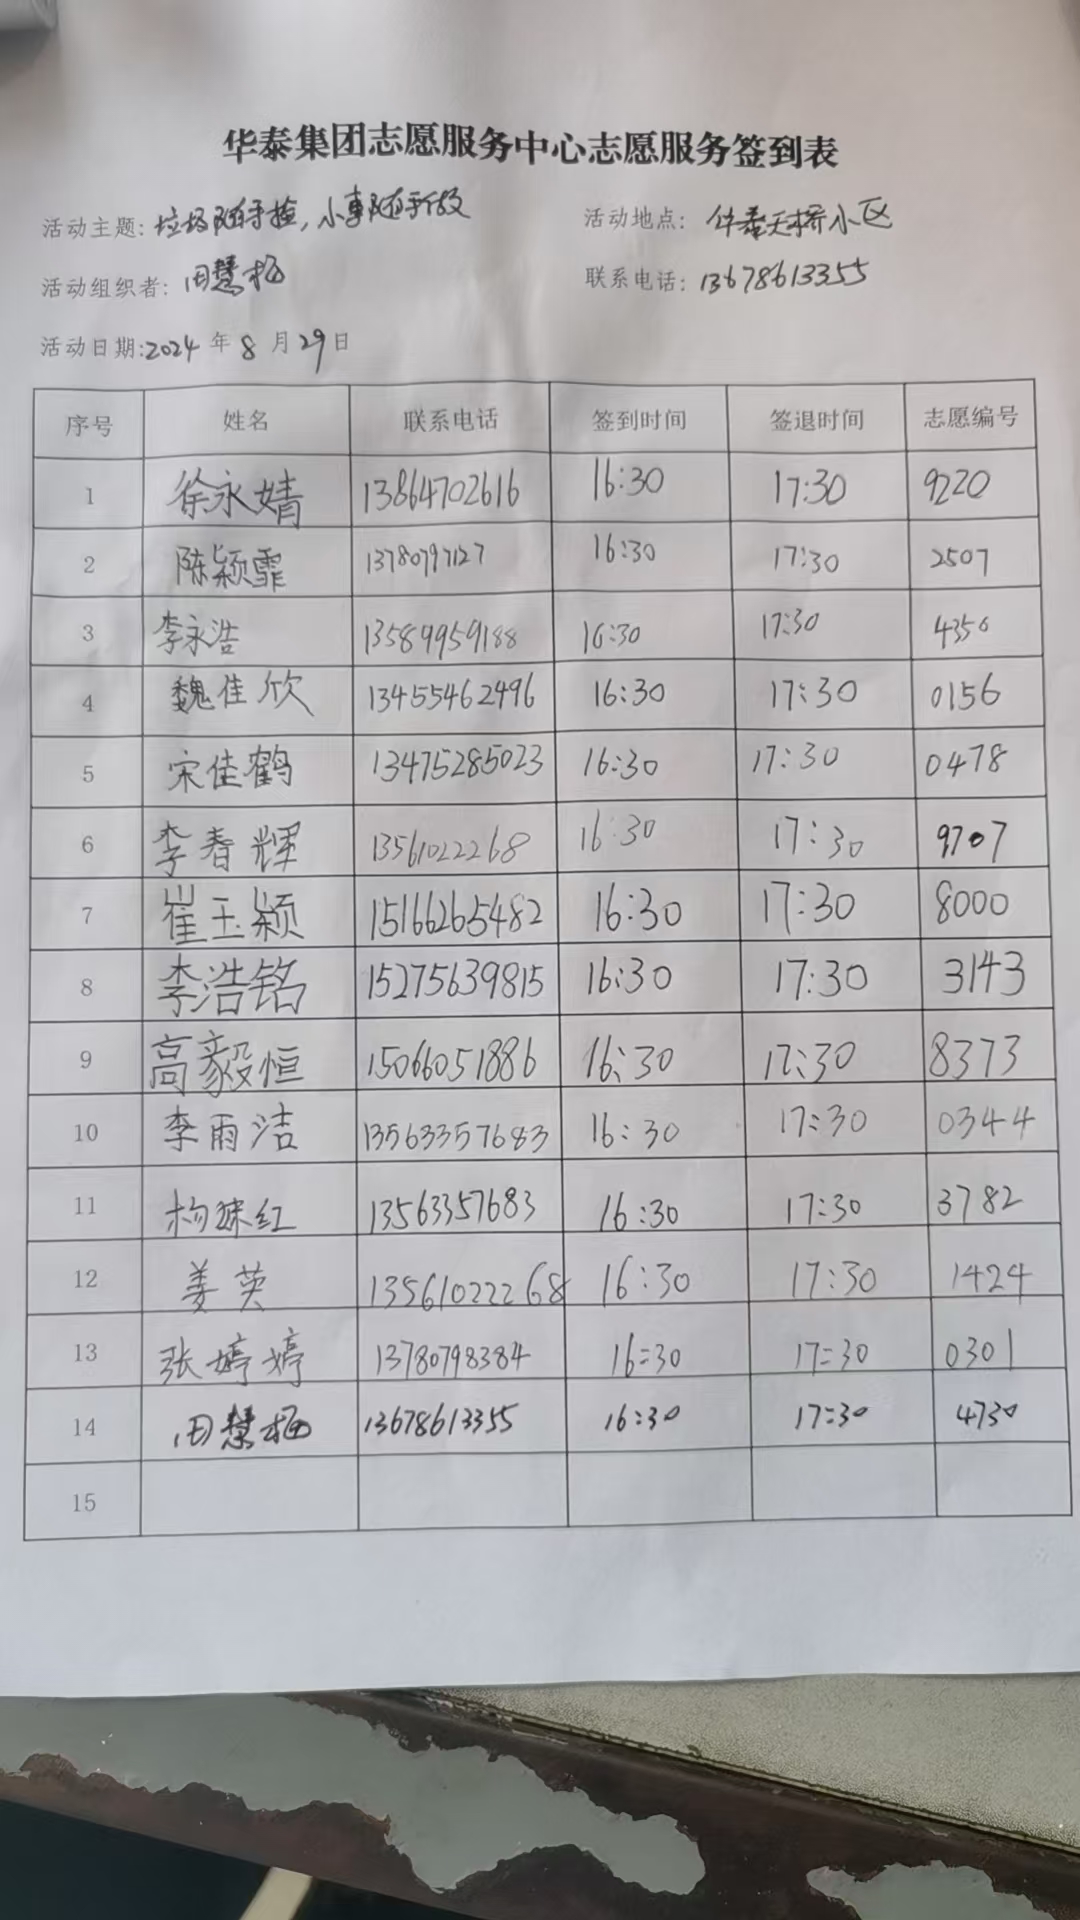 华泰集团志愿服务中心志愿服务签到表
活动主题: 垃圾随手捡，小事随手做 活动地点: 华泰天桥小区
活动组织者: 田慧 联系电话: 13678613355
活动日期:2024 年 8 月 29 日
序号 姓名 联系电话 签到时间 签退时间 志愿编号
1 徐永婧 13864702616 16:30 17:30 9220
2 陈颖霏 13780797127 16:30 17:30 2507
3 李永浩 13589959188 16:30 17:30 4356
4 魏佳欣 13455462496 16:30 17:30 0156
5 宋佳鹤 13475285023 16:30 17:30 0478
6 李春辉 13561022268 16:30 17:30 9707
7 崔玉颖 15166265482 16:30 17:30 8000
8 李浩铭 15275639815 16:30 17:30 3143
9 高毅恒 15066051886 16:30 17:30 8373
10 李雨洁 13563357683 16:30 17:30 0344
11 杨 红 13563357683 16:30 17:30 3782
12 姜英 13561022268 16:30 17:30 1424
13 张婷婷 13780798384 16=30 17=30 0301
14 田慧 13678613355 16:30 17:30 4730
15